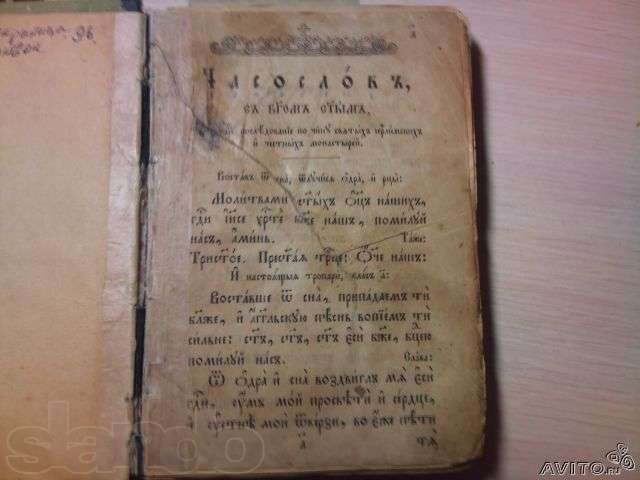 а
Часосло́въ,
съ бг҃омъ ст҃ы́мъ,
послѣдованіе по чину святыхъ
и честныхъ монастырей.
Воста́въ ѿ сна̀, ѿлучи́сѧ ѻ҆дра̀, и҆ рцы̀:
Моли́твами ст҃ы́хъ ѻ҆ц҃ъ на́шихъ,
гдⷭ҇и і҆и҃се хрⷭ҇тѐ бж҃е на́шъ, поми́луй
на́съ, а҆ми́нь. Та́же:
Трист҃о́е. Прест҃а́ѧ трⷪ҇це: Ѻ҆́ч҃е на́шъ:
И҆ настоѧ́щыѧ тропарѝ, гла́съ а҃:
Воста́вше ѿ сна̀, припа́даемъ тѝ
бл҃же, и҆ а҆́гг҃льскую пѣ́снь вопїе́мъ тѝ
си́льне: ст҃ъ, ст҃ъ, ст҃ъ є҆сѝ бж҃е, бцⷣею
поми́луй на́съ. Сла́ва:
Ѿ ѻ҆дра̀ и҆ сна̀ воздви́глъ мѧ̀ є҆сѝ
гдⷭ҇и, ᲂу҆́мъ мо́й просвѣтѝ и҆ се́рдце,
и҆ ᲂу҆стнѣ̀ моѝ ѿве́рзи, во є҆́же пѣ́ти
а҃
тѧ̀
slando
AVITO.ru